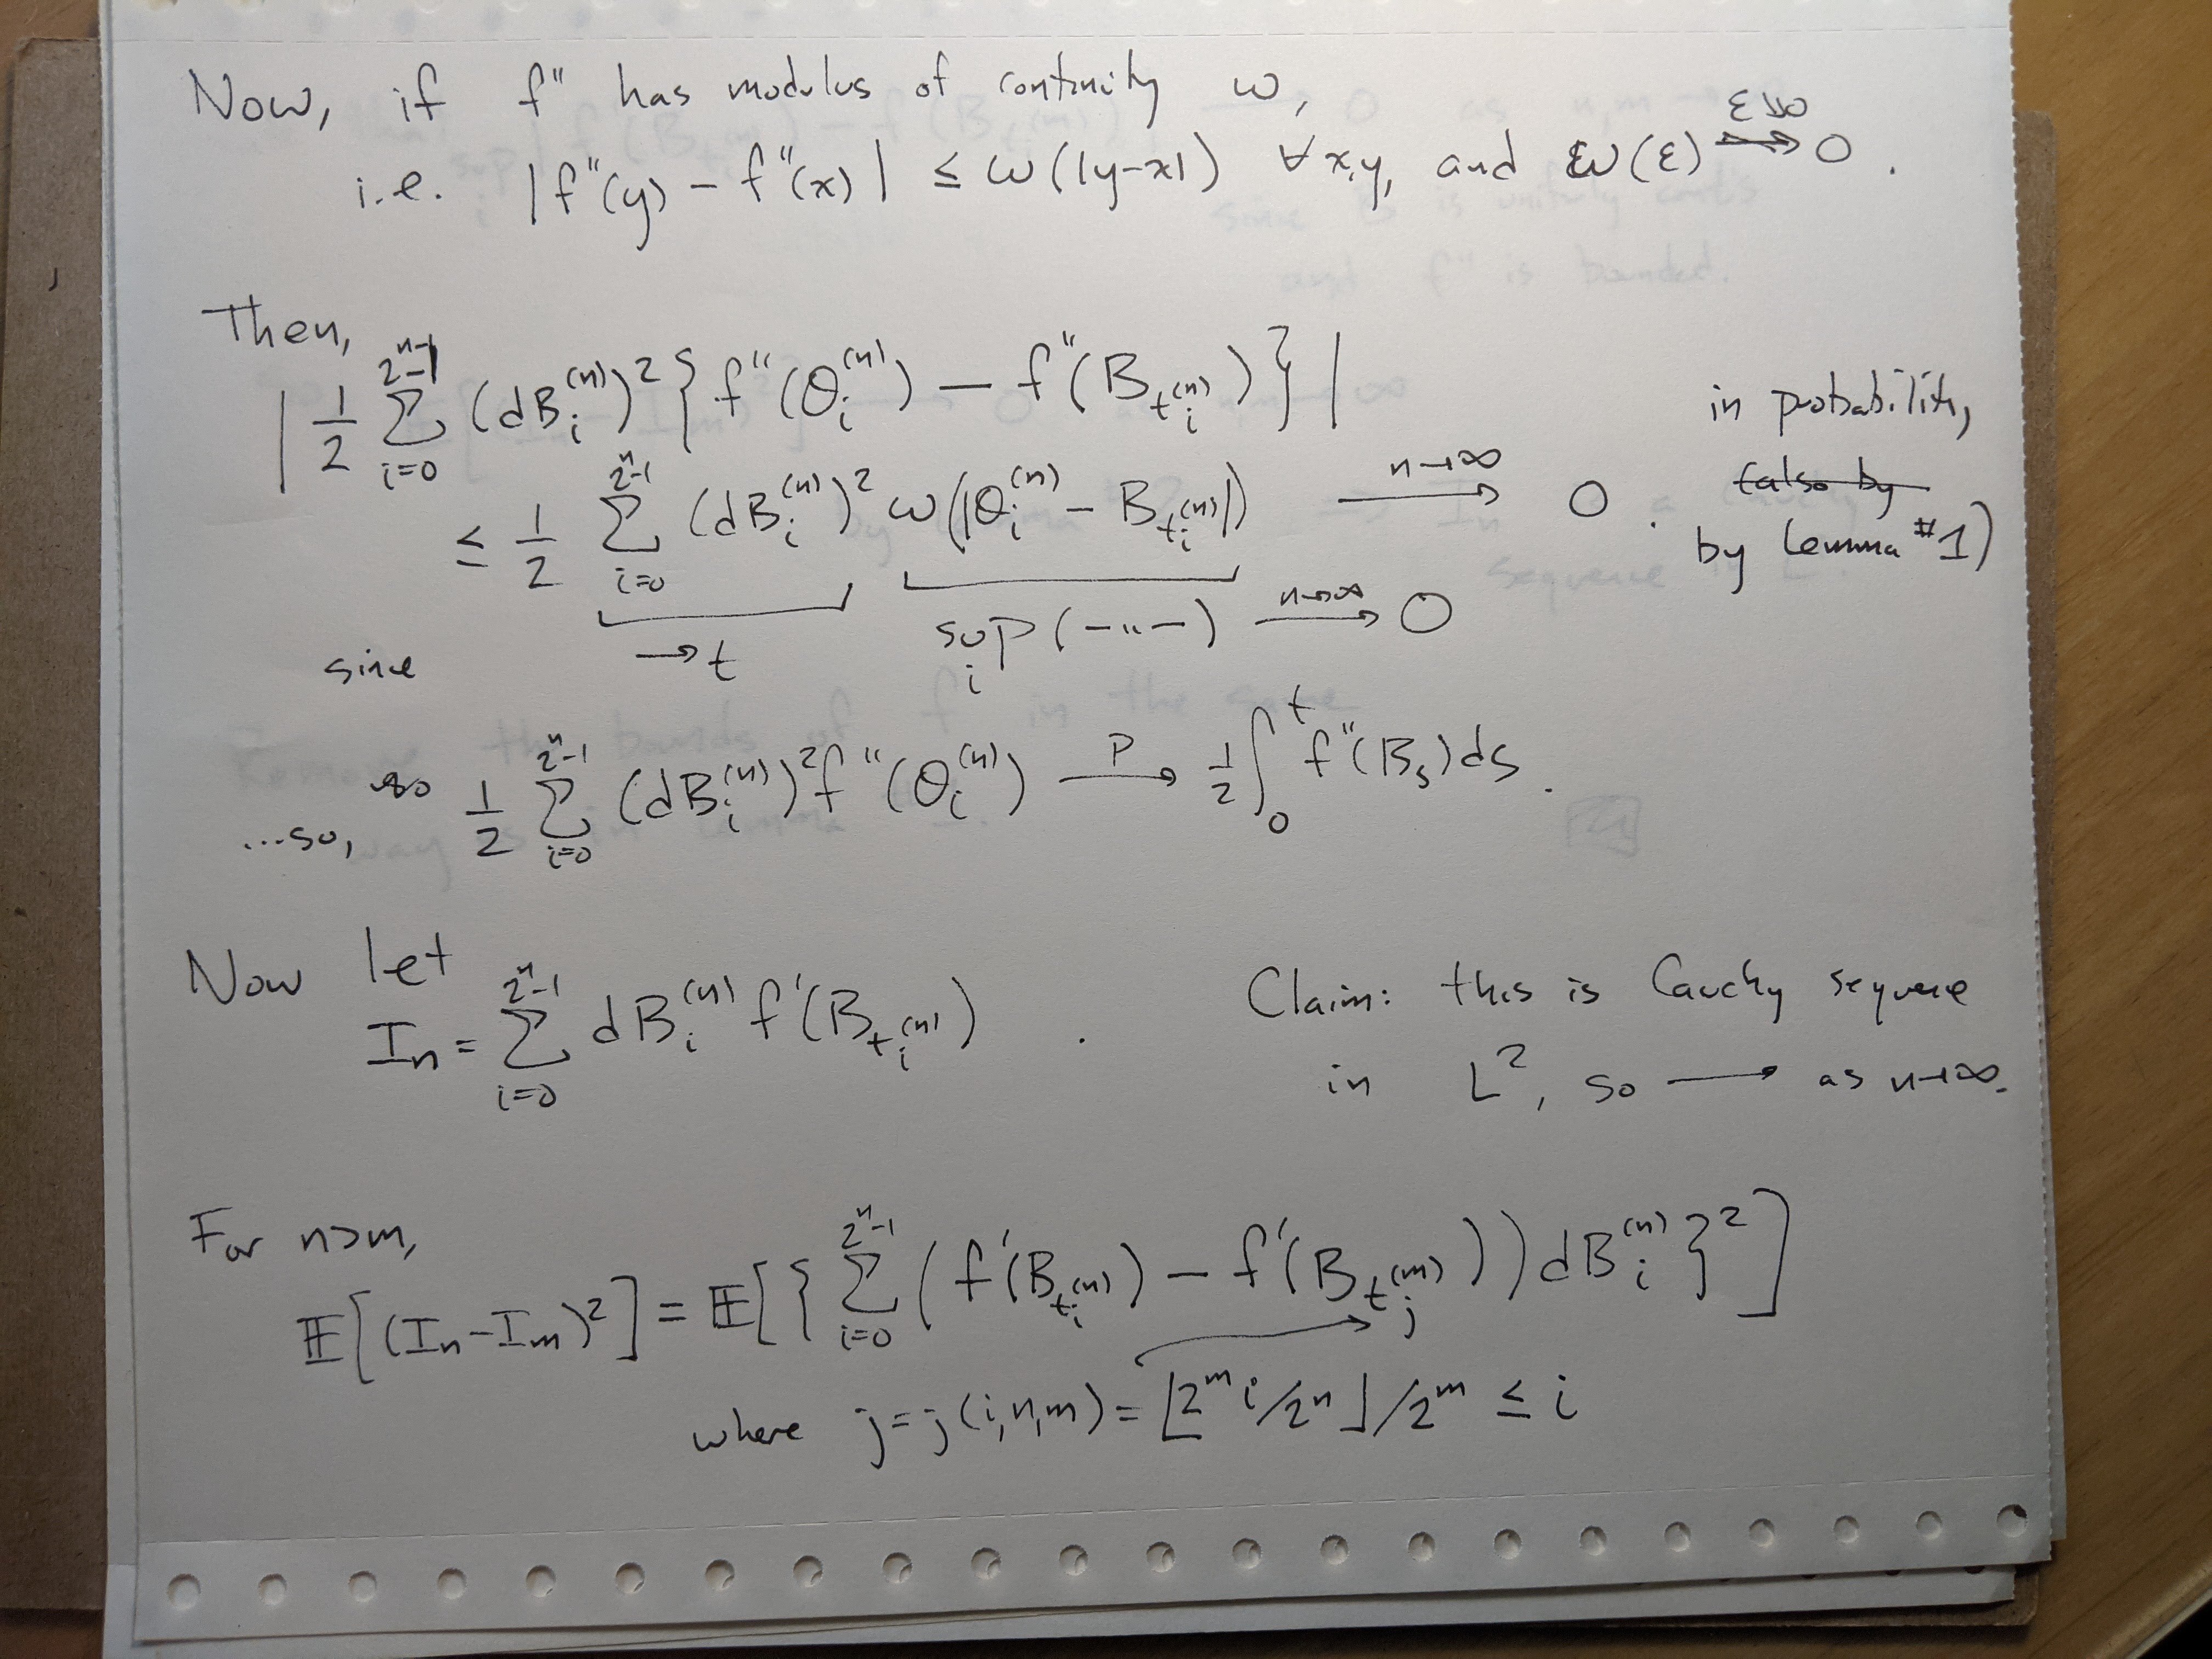 Now, if f'' has modulus of continuity ω,
i.e. |f''(y) − f''(x)| ≤ ω(|y−x|) ∀x,y, and ω(ε) → 0 .
ε↘0
Then,
| 1/2 ∑_{i=0}^{2^n−1} (dB_i^{(n)})² { f''(θ_i^{(n)}) − f''(B_{t_i^{(n)}}) } |
≤ 1/2 ∑_{i=0}^{2^n−1} (dB_i^{(n)})² ω(|θ_i^{(n)} − B_{t_i^{(n)}}|) →^{n→∞} 0 .
in probability,
(also by
by Lemma #1)
since → t sup_i (–〃–) →^{n→∞} 0
so
...so, 1/2 ∑_{i=0}^{2^n−1} (dB_i^{(n)})² f''(θ_i^{(n)}) →^P 1/2 ∫_0^t f''(B_s) ds .
Now let
I_n = ∑_{i=0}^{2^n−1} dB_i^{(n)} f'(B_{t_i^{(n)}}) .
Claim: this is Cauchy sequence
in L², so → as n→∞.
For n>m,
𝔼[(I_n−I_m)²] = 𝔼[{ ∑_{i=0}^{2^n−1} ( f'(B_{t_i^{(n)}}) − f'(B_{t_j^{(m)}}) ) dB_i^{(n)} }²]
where j=j(i,n,m) = ⌊2^m i/2^n⌋/2^m ≤ i